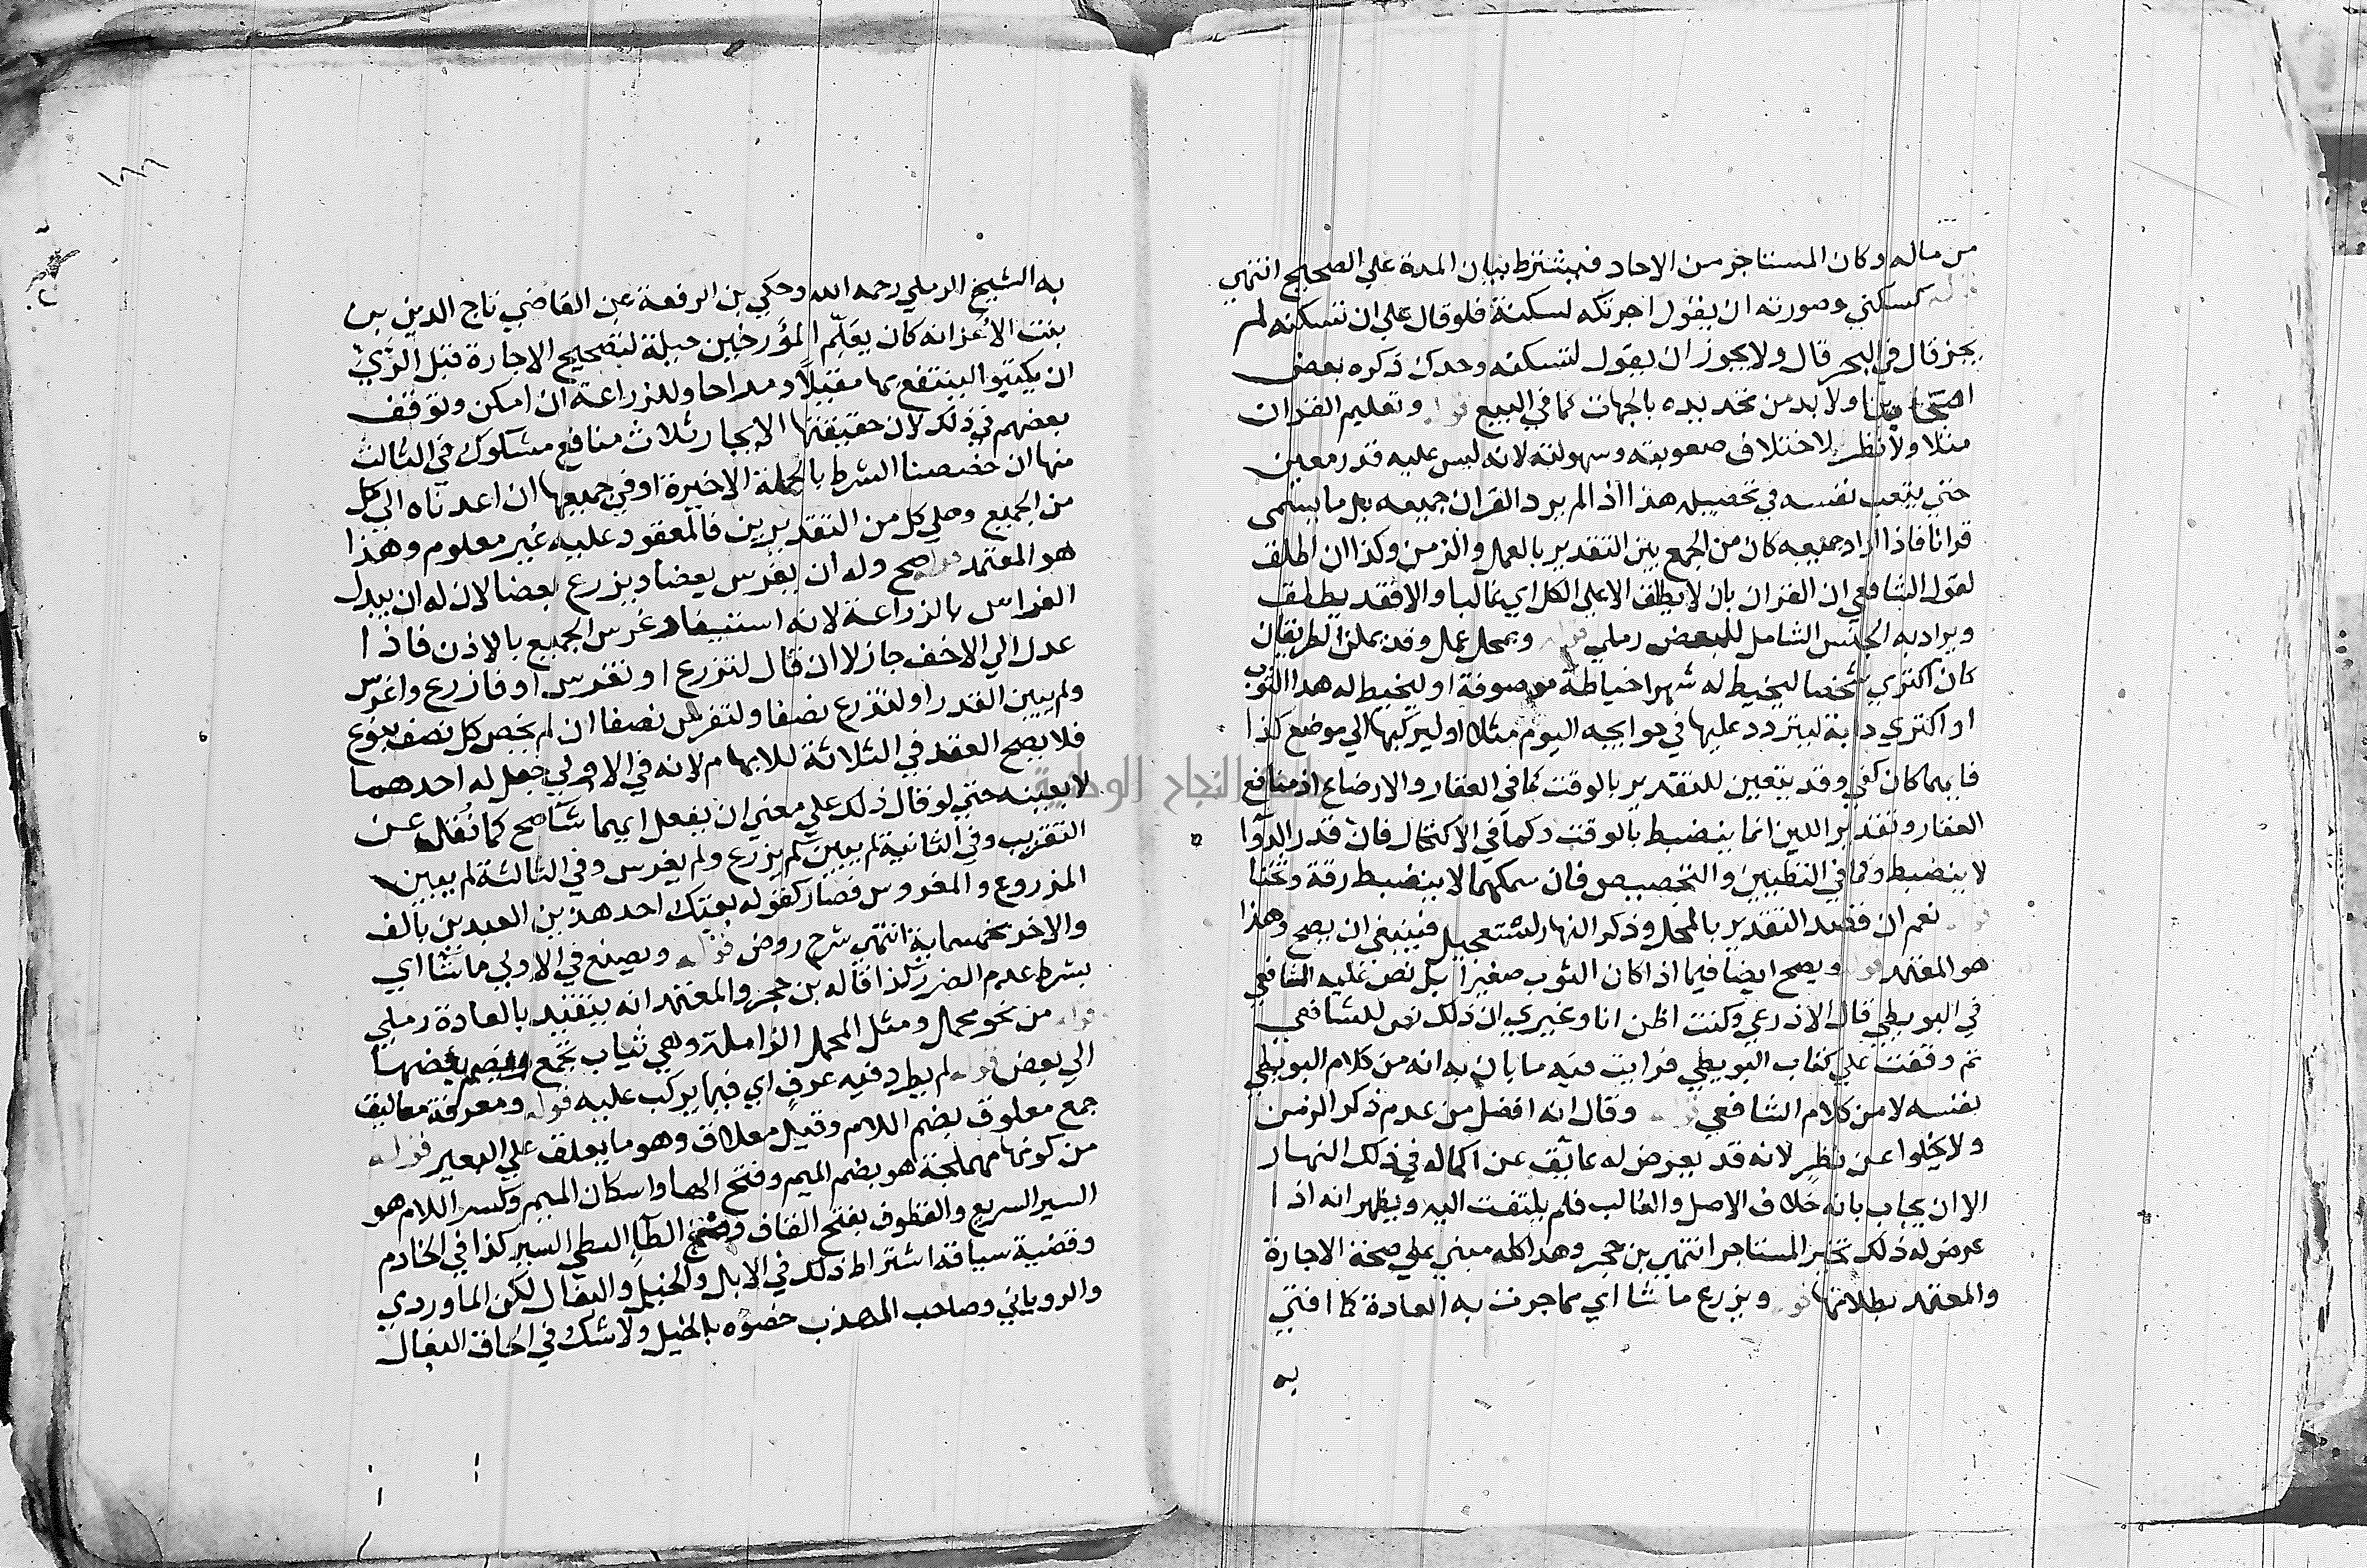 من ماله وكان المستاجر من الاحاد فيشترط بيان المدة علي الصحيح انتهي
قوله كسكني وصورته ان يقول اجرتكه لسكنه فلو قال علي ان تسكنه لم
يجز قال في البحر قال ولا يجوز ان يقول لتسكنه وحدك ذكره بعض
اصحابنا ولا بد من تحديده بالجهات كما في البيع قوله وتعليم القران
مثلا ولا نظر لاختلاف صعوبته وسهولته لانه ليس عليه قدر معين
حتي يتعب نفسه في تحصيله هذا اذا لم يرد القران جميعه بل ما يسمي
قرانا فاذا اراد جميعه كان من الجمع بين التقدير بالعمل والزمن وكذا ان اطلق
لقول الشافعي ان القران بان لا يطلق الا علي الكل اي غالبا والا فقد يطلق
ويراد به الجنس الشامل للبعض رملي قوله وبمحل عمل وقد يمكن الطريقان
كان اكتري شخصا ليخيط له شهرا خياطة موصوفة او ليخيط له هذا الثوب
او اكتري دابة ليتردد عليها في حوايجه اليوم مثلا او ليركبها الي موضع كذا
فايهما كان كفي وقد يتعين للتقدير بالوقت كما في العقار والارضاع اذ منافع
العقار وتقدير اللبن انما ينضبط بالوقت وكما في الاكتحال فان قدر الدوا
لا ينضبط وكما في التطيين والتجصيص فان سمكهما لا ينضبط رقة وثخنا
قوله نعم ان قصد التقدير بالمحل وذكر النهار لتستعجيل فينبغي ان يصح وهذا
هو المعتمد قوله ويصح ايضا فيما اذا كان الثوب صغيرا بل نص عليه الشافعي
في البويطي قال الاذرعي وكنت اظن انا وغيري ان ذلك نص للشافعي
ثم وقفت علي كتاب البويطي فرايت فيه ما بان به انه من كلام البويطي
نفسه لا من كلام الشافعي قوله وقال انه افضل من عدم ذكر الزمن
ولا يخلوا عن نظر لانه قد يعرض له عايق عن اكماله في ذلك النهار
الا ان يجاب بانه خلاف الاصل والغالب فلم يلتفت اليه ويظهر انه اذا
عرض له ذلك تخير المستاجر انتهي بن حجر وهذا كله مبني علي صحة الاجارة
والمعتمد بطلانها قوله ويزرع ما شا اي مما جرت به العادة كما افتي
به
١٨٦
به الشيخ الرملي رحمه الله وحكي بن الرفعة عن القاضي تاج الدين بن
بنت الاعز انه كان يعلم المؤرخين حيلة لتصحيح الاجارة قبل الري
ان يكتبوا لينتفع بها مقيلا ومراحا وللزراعة ان امكن وتوقف
بعضهم في ذلك لان حقيقتها الايجار ثلاث منافع مشكوك في الثالث
منها ان خصصنا الشرط بالجملة الاخيرة او في جميعها ان اعدناه الي كل
من الجميع وعلي كل من التقديرين فالمعقود عليه غير معلوم وهذا
هو المعتمد قوله صح وله ان يغرس بعضا ويزرع بعضا لان له ان يبدل
الغراس بالزراعة لانه استيفا وغرس الجميع بالاذن فاذا
عدل الي الاخف جاز لا ان قال لتزرع او تغرس او فازرع واغرس
ولم يبين القدر او لتزرع نصفا ولتغرس نصفا ان لم يخص كل نصف بنوع
فلا يصح العقد في الثلاثة للابهام لانه في الاولي جعل له احدهما
لا بعينه حتي لو قال ذلك علي معني ان يفعل ايهما شا صح كما نقل عن
التقريب وفي الثانية لم يبين كم يزرع ولم يغرس وفي الثالثة لم يبين
المزروع والمغروس فصار كقوله بعتك احد هذين العبدين بالف
والاخر بخمسماية انتهي شرح روض قوله ويصنع في الاولي ما شا اي
بشرط عدم الضرر كذا قاله بن حجر والمعتمد انه يتقيد بالعادة رملي
قوله من نحو محمل ومثل المحمل الزاملة وهي ثياب تجمع ويضم بعضها
الي بعض قوله لم يطرد فيه عرف اي فيما يركب عليه قوله ومعرفة معاليق
جمع معلوق بضم اللام وقيل معلاق وهو ما يعلق علي البعير قوله
من كونها مهملجة هو بضم الميم وفتح الها واسكان الميم وكسر اللام هو
السير السريع والقطوف بفتح القاف وضم الطا البطي السير كذا في الخادم
وقضية سياقه اشتراط ذلك في الابل والخيل والبغال لكن الماوردي
والروياني وصاحب المهذب خصوه بالخيل ولا شك في الحاق البغال
جامعة النجاح الوطنية